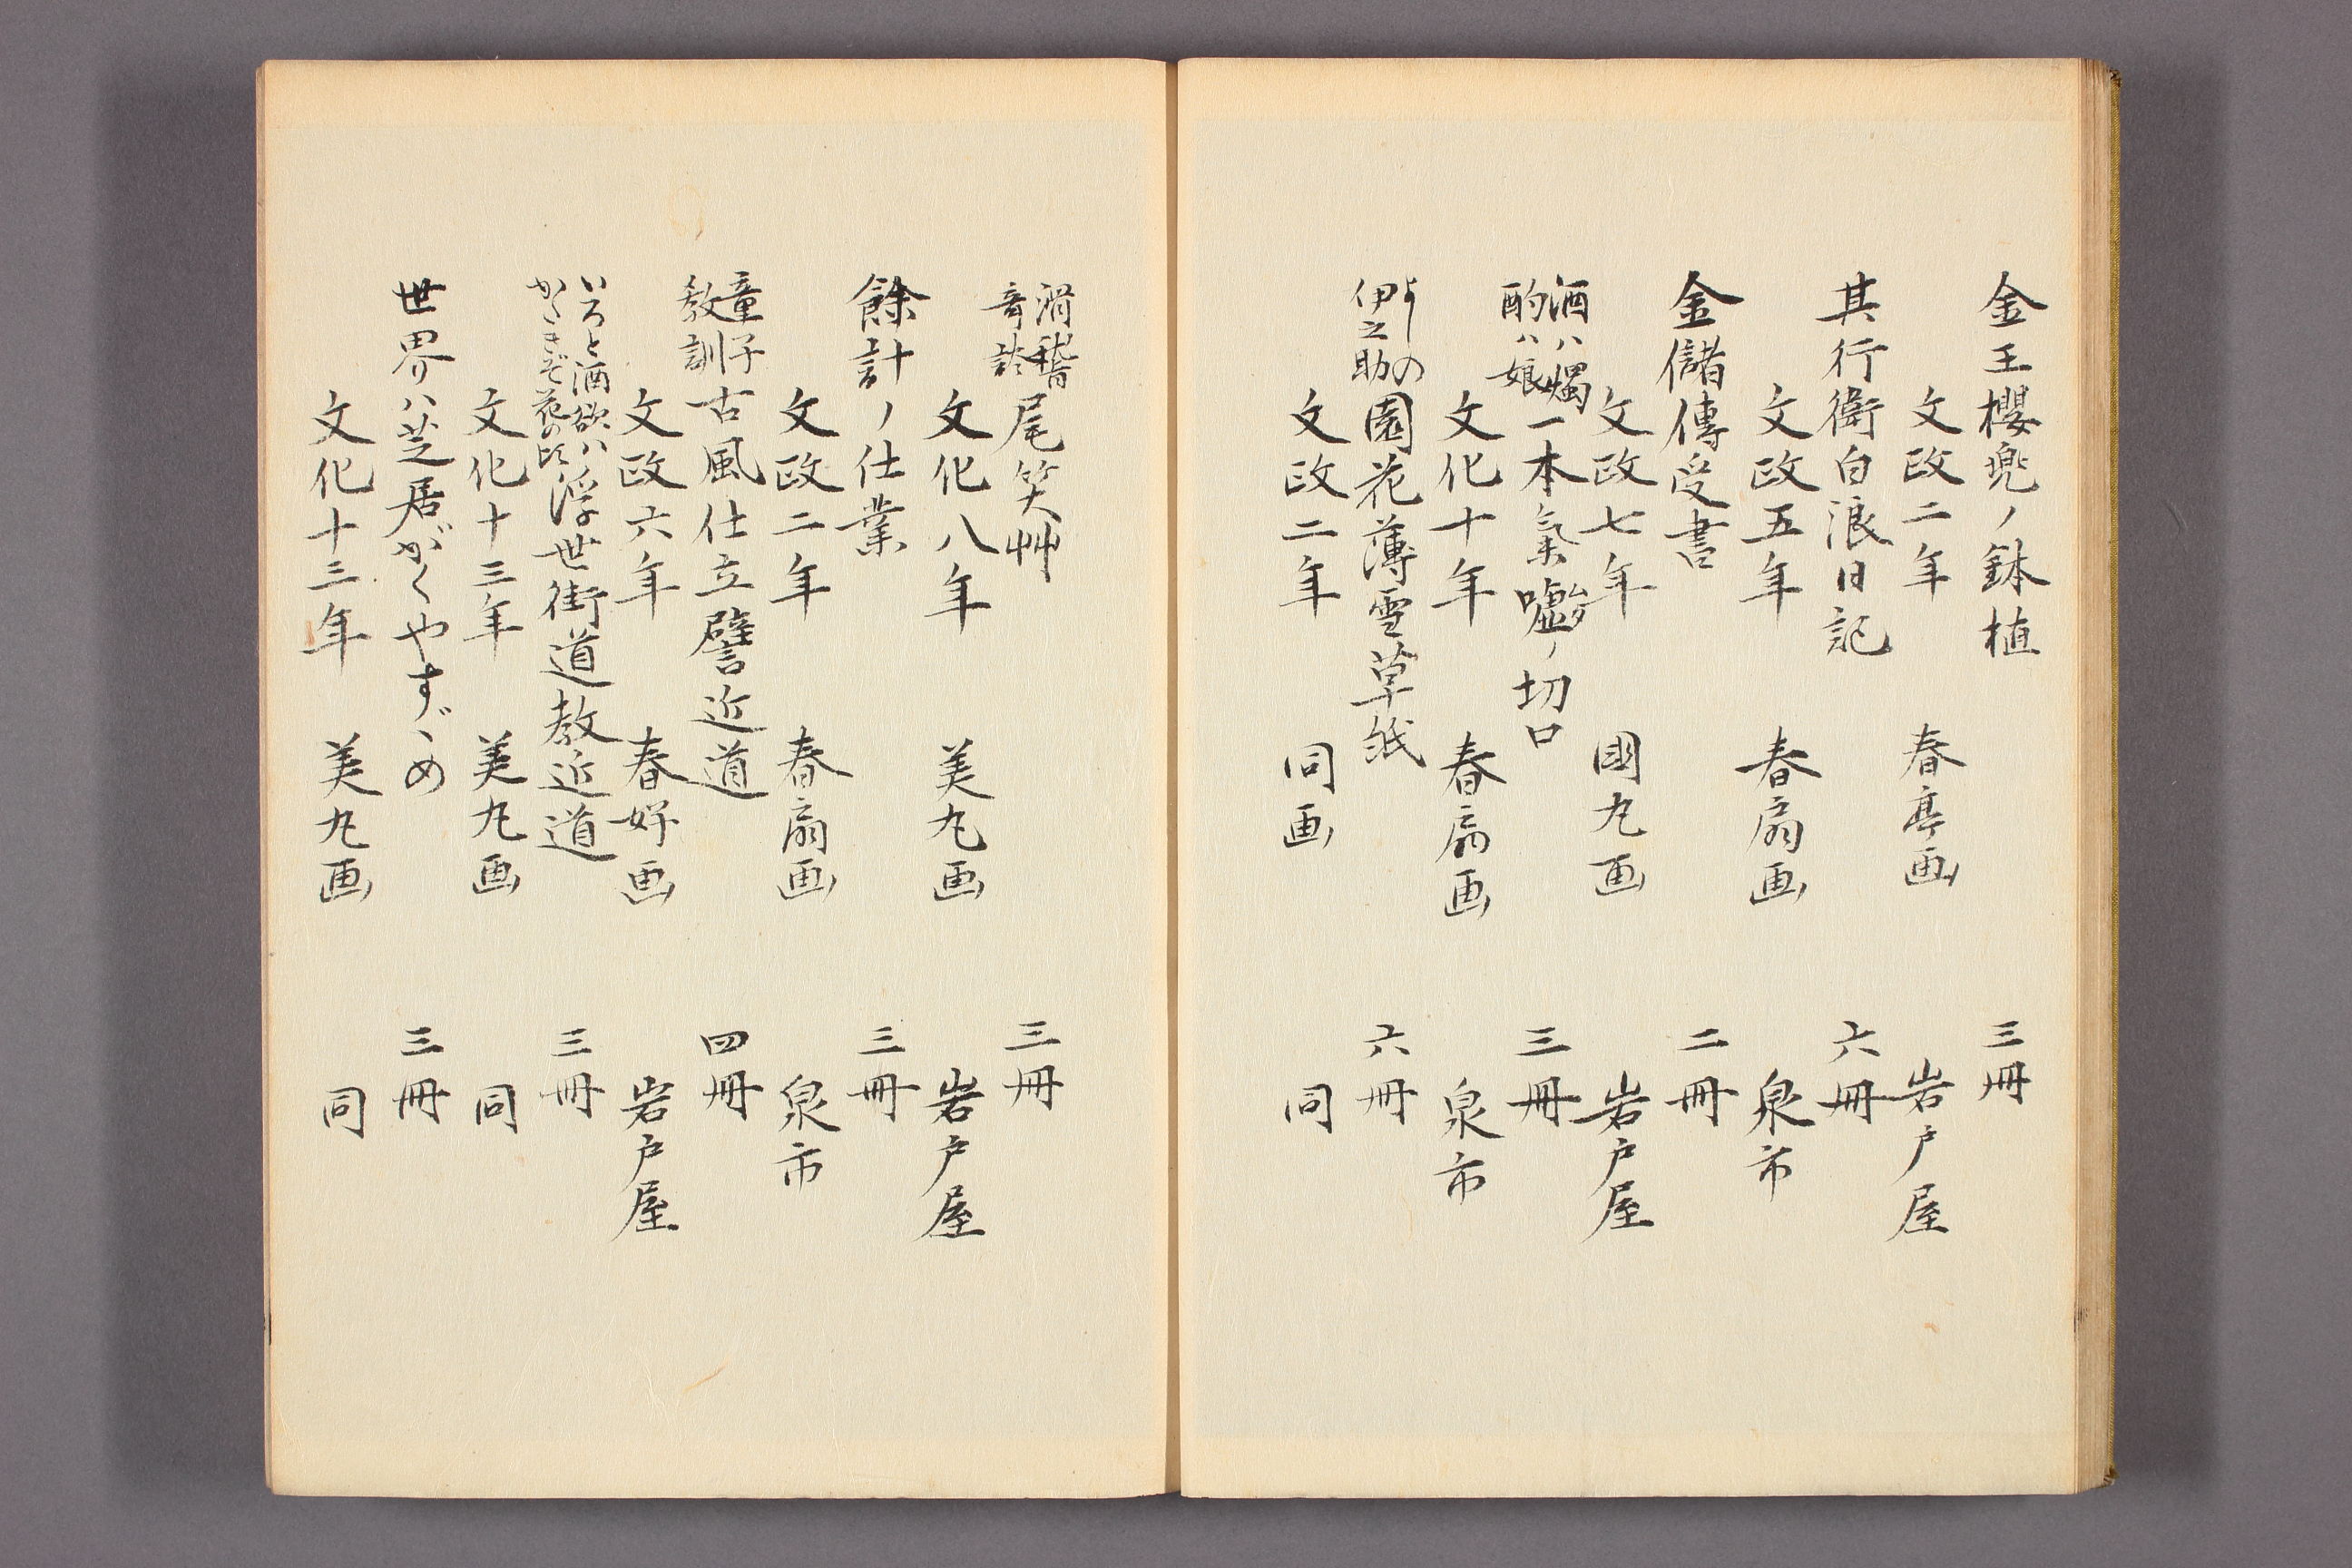 金王櫻兜ノ鉢植 三冊
文政二年 春亭画 岩戸屋
其行衛白浪日記 六冊
文政五年 春扇画 泉市
金儲傳受書 二冊
文政七年 國丸画 岩戸屋
酒ハ燗
酌ハ娘
一本氣嘘ノ切口 三冊
文化十年 春扇画 泉市
よしの
伊之助
園花薄雪草紙 六冊
文政二年 同画 同
滑稽
竒談
尾笑艸 三冊
文化八年 美丸画 岩戸屋
餘計ノ仕業 三冊
文政二年 春扇画 泉市
童子
教訓
古風仕立譬近道 四冊
文政六年 春好画 岩戸屋
いろと酒欲ハ
浮世街道教近道 三冊
文化十三年 美丸画 同
世界ハ芝居がくやすゞめ 三冊
文化十三年 美丸画 同